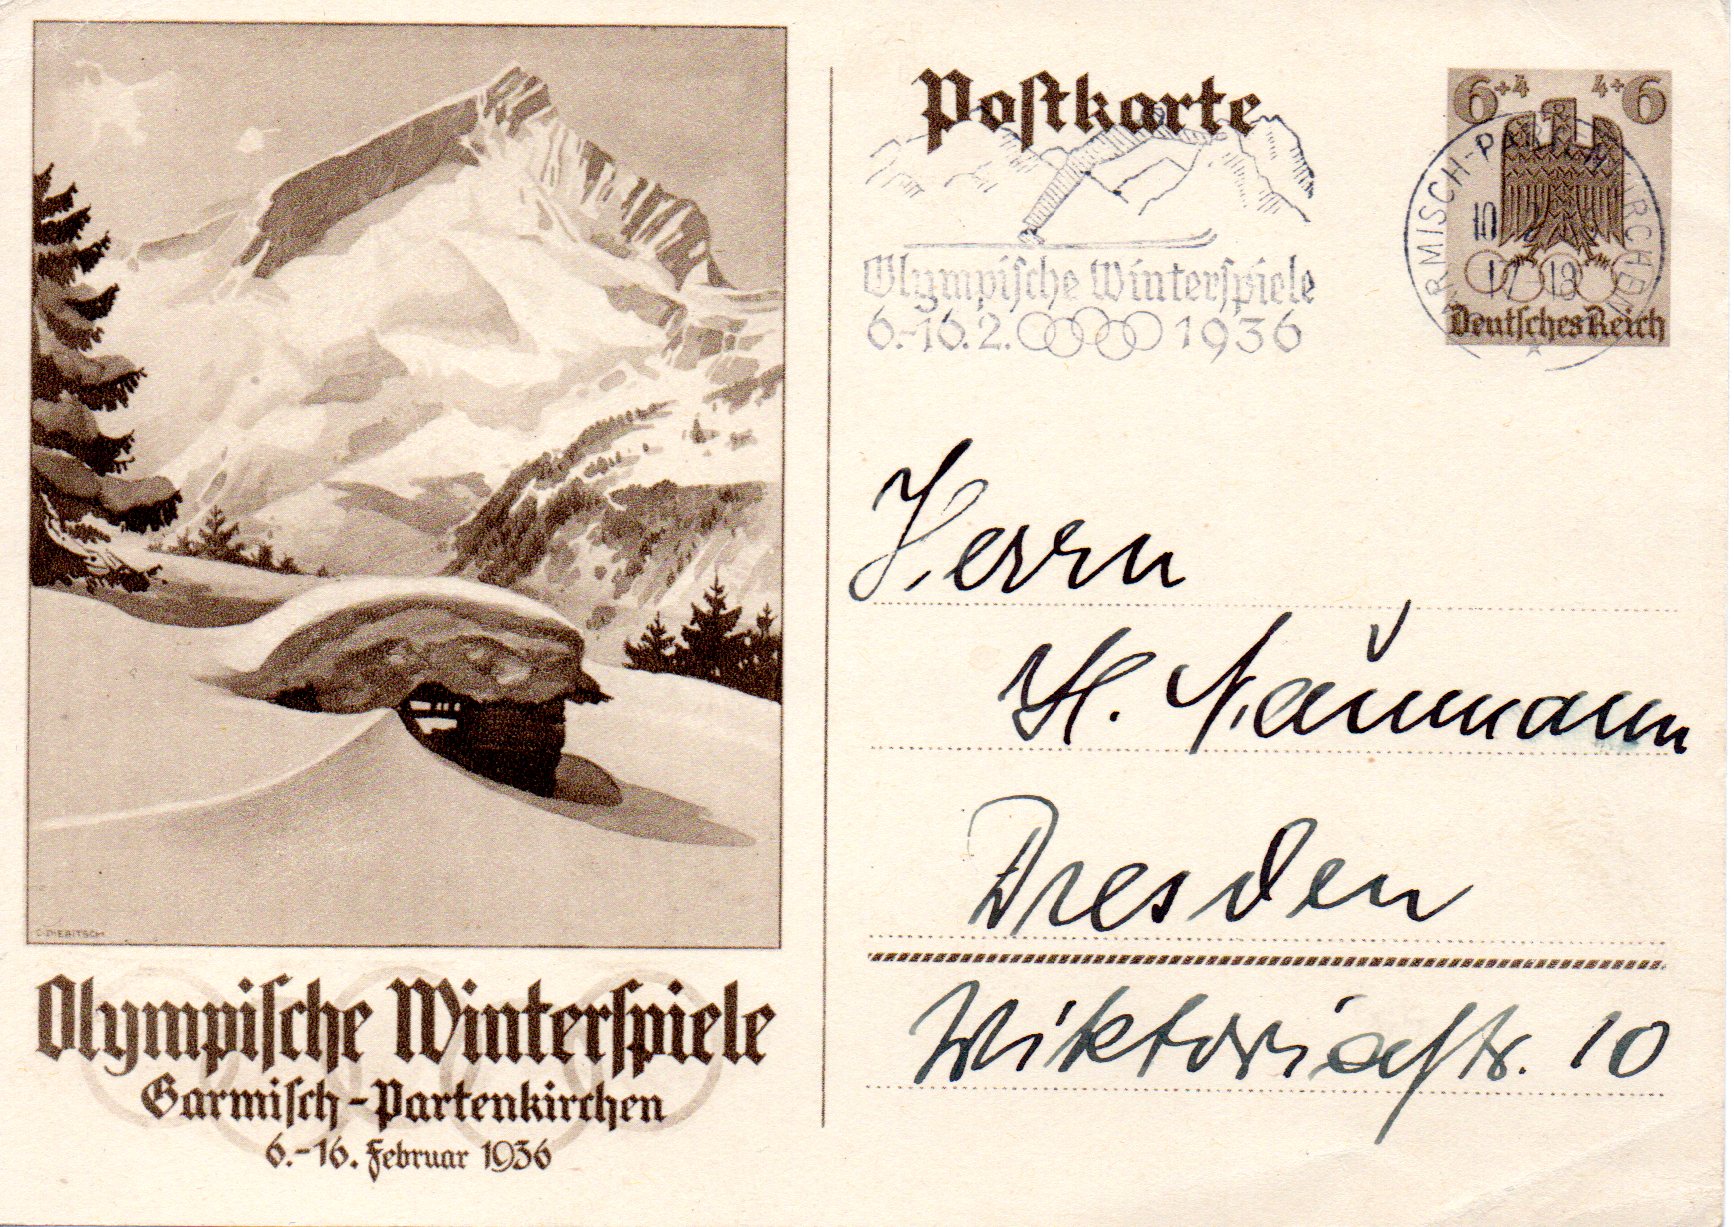 C. DIEBITSCH
Olympische Winterspiele
Garmisch-Partenkirchen
6.-16. Februar 1936
Postkarte
Olympische Winterspiele
6.-16.2. 1936
6+4 4+6
GARMISCH-PARTENKIRCHEN
10
17-18
Deutsches Reich
Herrn
H. Naumann
Dresden
Wiktoriastr. 10